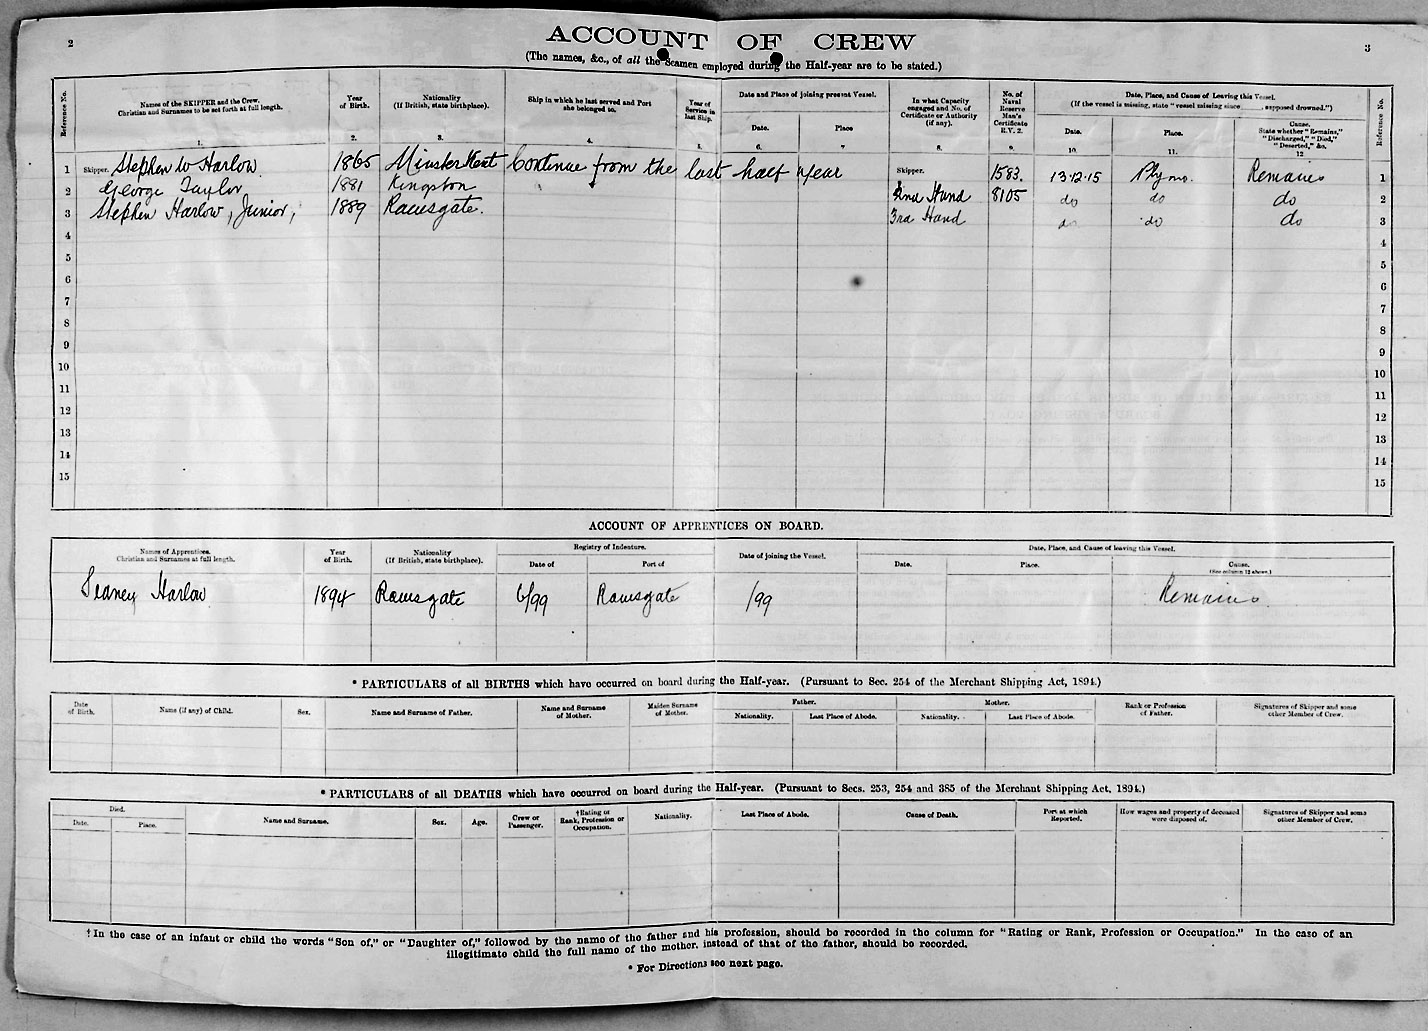 2
3
ACCOUNT OF CREW
(The names, &c., of all the Seamen employed during the Half-year are to be stated.)
Reference No. Names of the SKIPPER and the Crew. Christian and Surnames to be set forth at full length. Year of Birth. Nationality (If British, state birthplace). Ship in which he last served and Port she belonged to. Year of Service in last Ship. Date and Place of joining present Vessel. In what Capacity engaged and No. of Certificate or Authority (if any). No. of Naval Reserve Man's Certificate R.V. 2. Date, Place, and Cause of Leaving this Vessel. Reference No.
(If the vessel is missing, state "vessel missing since ____, supposed drowned.")
Date. Place Date. Place. Cause. State whether "Remains," "Discharged," "Died," "Deserted," &c.
1. 2. 3. 4. 5. 6. 7. 8. 9. 10. 11. 12
1 Skipper. Stephen W Harlow 1865 Minster Kent Continue from the last half year Skipper. 1583. 13·12·15 Plymo. Remains 1
2 George Taylor 1881 Kingston 2nd Hand 8105 do do do 2
3 Stephen Harlow, Junior, 1889 Ramsgate. 3rd Hand do do do 3
4 4
5 5
6 6
7 7
8 8
9 9
10 10
11 11
12 12
13 13
14 14
15 15
ACCOUNT OF APPRENTICES ON BOARD.
Names of Apprentices. Christian and Surnames at full length. Year of Birth. Nationality (If British, state birthplace). Registry of Indenture. Date of joining the Vessel. Date, Place, and Cause of leaving this Vessel.
Date of Port of Date. Place. Cause. (See column 12 above.)
Sidney Harlow 1894 Ramsgate 6/99 Ramsgate /99 Remains
* PARTICULARS of all BIRTHS which have occurred on board during the Half-year. (Pursuant to Sec. 254 of the Merchant Shipping Act, 1894.)
Date of Birth. Name (if any) of Child. Sex. Name and Surname of Father. Name and Surname of Mother. Maiden Surname of Mother. Father. Mother. Rank or Profession of Father. Signatures of Skipper and some other Member of Crew.
Nationality. Last Place of Abode. Nationality. Last Place of Abode.
* PARTICULARS of all DEATHS which have occurred on board during the Half-year. (Pursuant to Secs. 253, 254 and 385 of the Merchant Shipping Act, 1894.)
Died. Name and Surname. Sex. Age. Crew or Passenger. †Rating or Rank, Profession or Occupation. Nationality. Last Place of Abode. Cause of Death. Port at which Reported. How wages and property of deceased were disposed of. Signatures of Skipper and some other Member of Crew.
Date. Place.
† In the case of an infant or child the words "Son of," or "Daughter of," followed by the name of the father and his profession, should be recorded in the column for "Rating or Rank, Profession or Occupation." In the case of an
illegitimate child the full name of the mother, instead of that of the father, should be recorded.
* For Directions see next page.